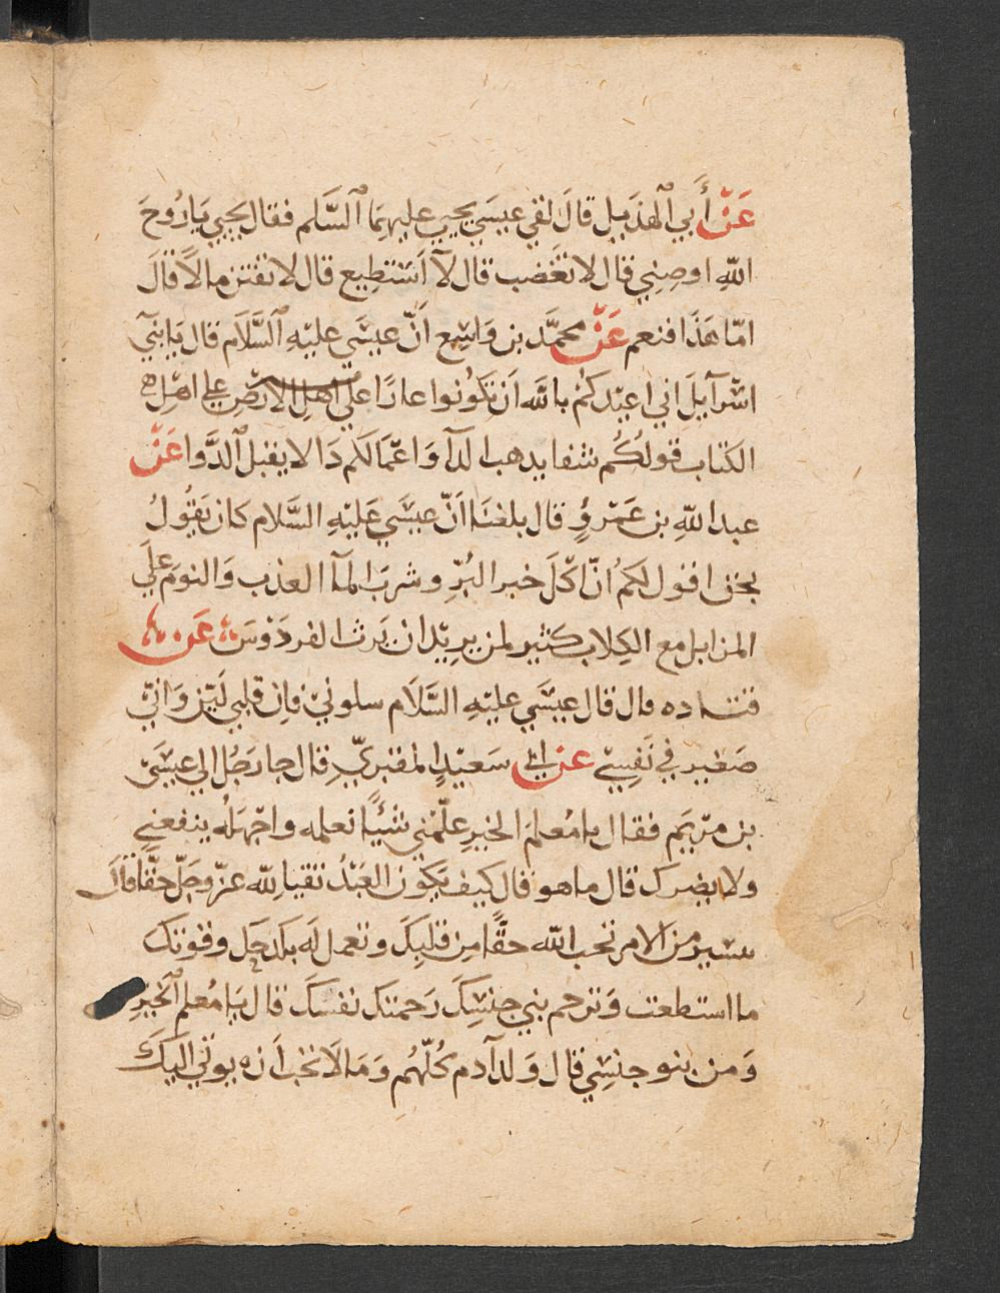 عَنْ أَبي الهذيل قالَ لقي عيسَي يحيى عليهِمَا السَّلم فقال يحيي يَا رُوحَ
اللّهِ اوصِنِي قال لا تغَضب قال لآ اَسْتطِيع قال لا تقتن مالاً قالَ
امّا هَذَا فنعم عَنْ محمَّد بن وَاسِع اَنّ عيسَي عليْهِ السَّلَام قال يَا بني
اسْرآيلَ اني اعيّدكُمْ باللَّه اَن تكُونُوا عارًا علَي اهلِ الارضِ علي اهْلِ
الكتاب قولُكُم شفا يدهب الدآ وَاعمَالكم دَا لا يقبل الدَّوا عَنْ
عبد اللّهِ بن عَمْروٍ قال بلغنَا اَنّ عيسَي عَليْهِ السَّلام كان يَقُولُ
بحق اقول لكُمُ انّ اكلَ خبر البُرّ وشربَ المآ العذب وَالنومَ علَي
المزابل مع الكِلاب كثير لمن يريد ان يَرثَ الفردَوسَ عَن
قتاده قال قال عيسَي عليْهِ السَّلَام سلوني فاِن قلبي لَيّن وَاني
صَغير في نَفسِي عن ابي سَعيْدٍ المقبريّ قال جا رَجُل الي عيسَى
بن مرْيَم فقال يا مُعلمَ الخيرِ علّمْني شيْئًا نعلمه واجهَلُه ينفعني
ولا يضرك قال ما هو قال كيف يَكون العَبْدُ تقيا لله عزّ وجَلّ حقًّا قالَ
بيسير من الامر تحب اللّه حقًّا مِن قلبِكَ وتعمل لَه بكدحِكَ وقوتك
ما استطعت وَترحم بني جنسِكَ رَحمتك نفسكَ قال يا مُعلم الخيرِ
وَمن بنو جنسِي قال وَلد آدم كُلّهُم وَمَا لَا تحب اَن يوتي اليكَ